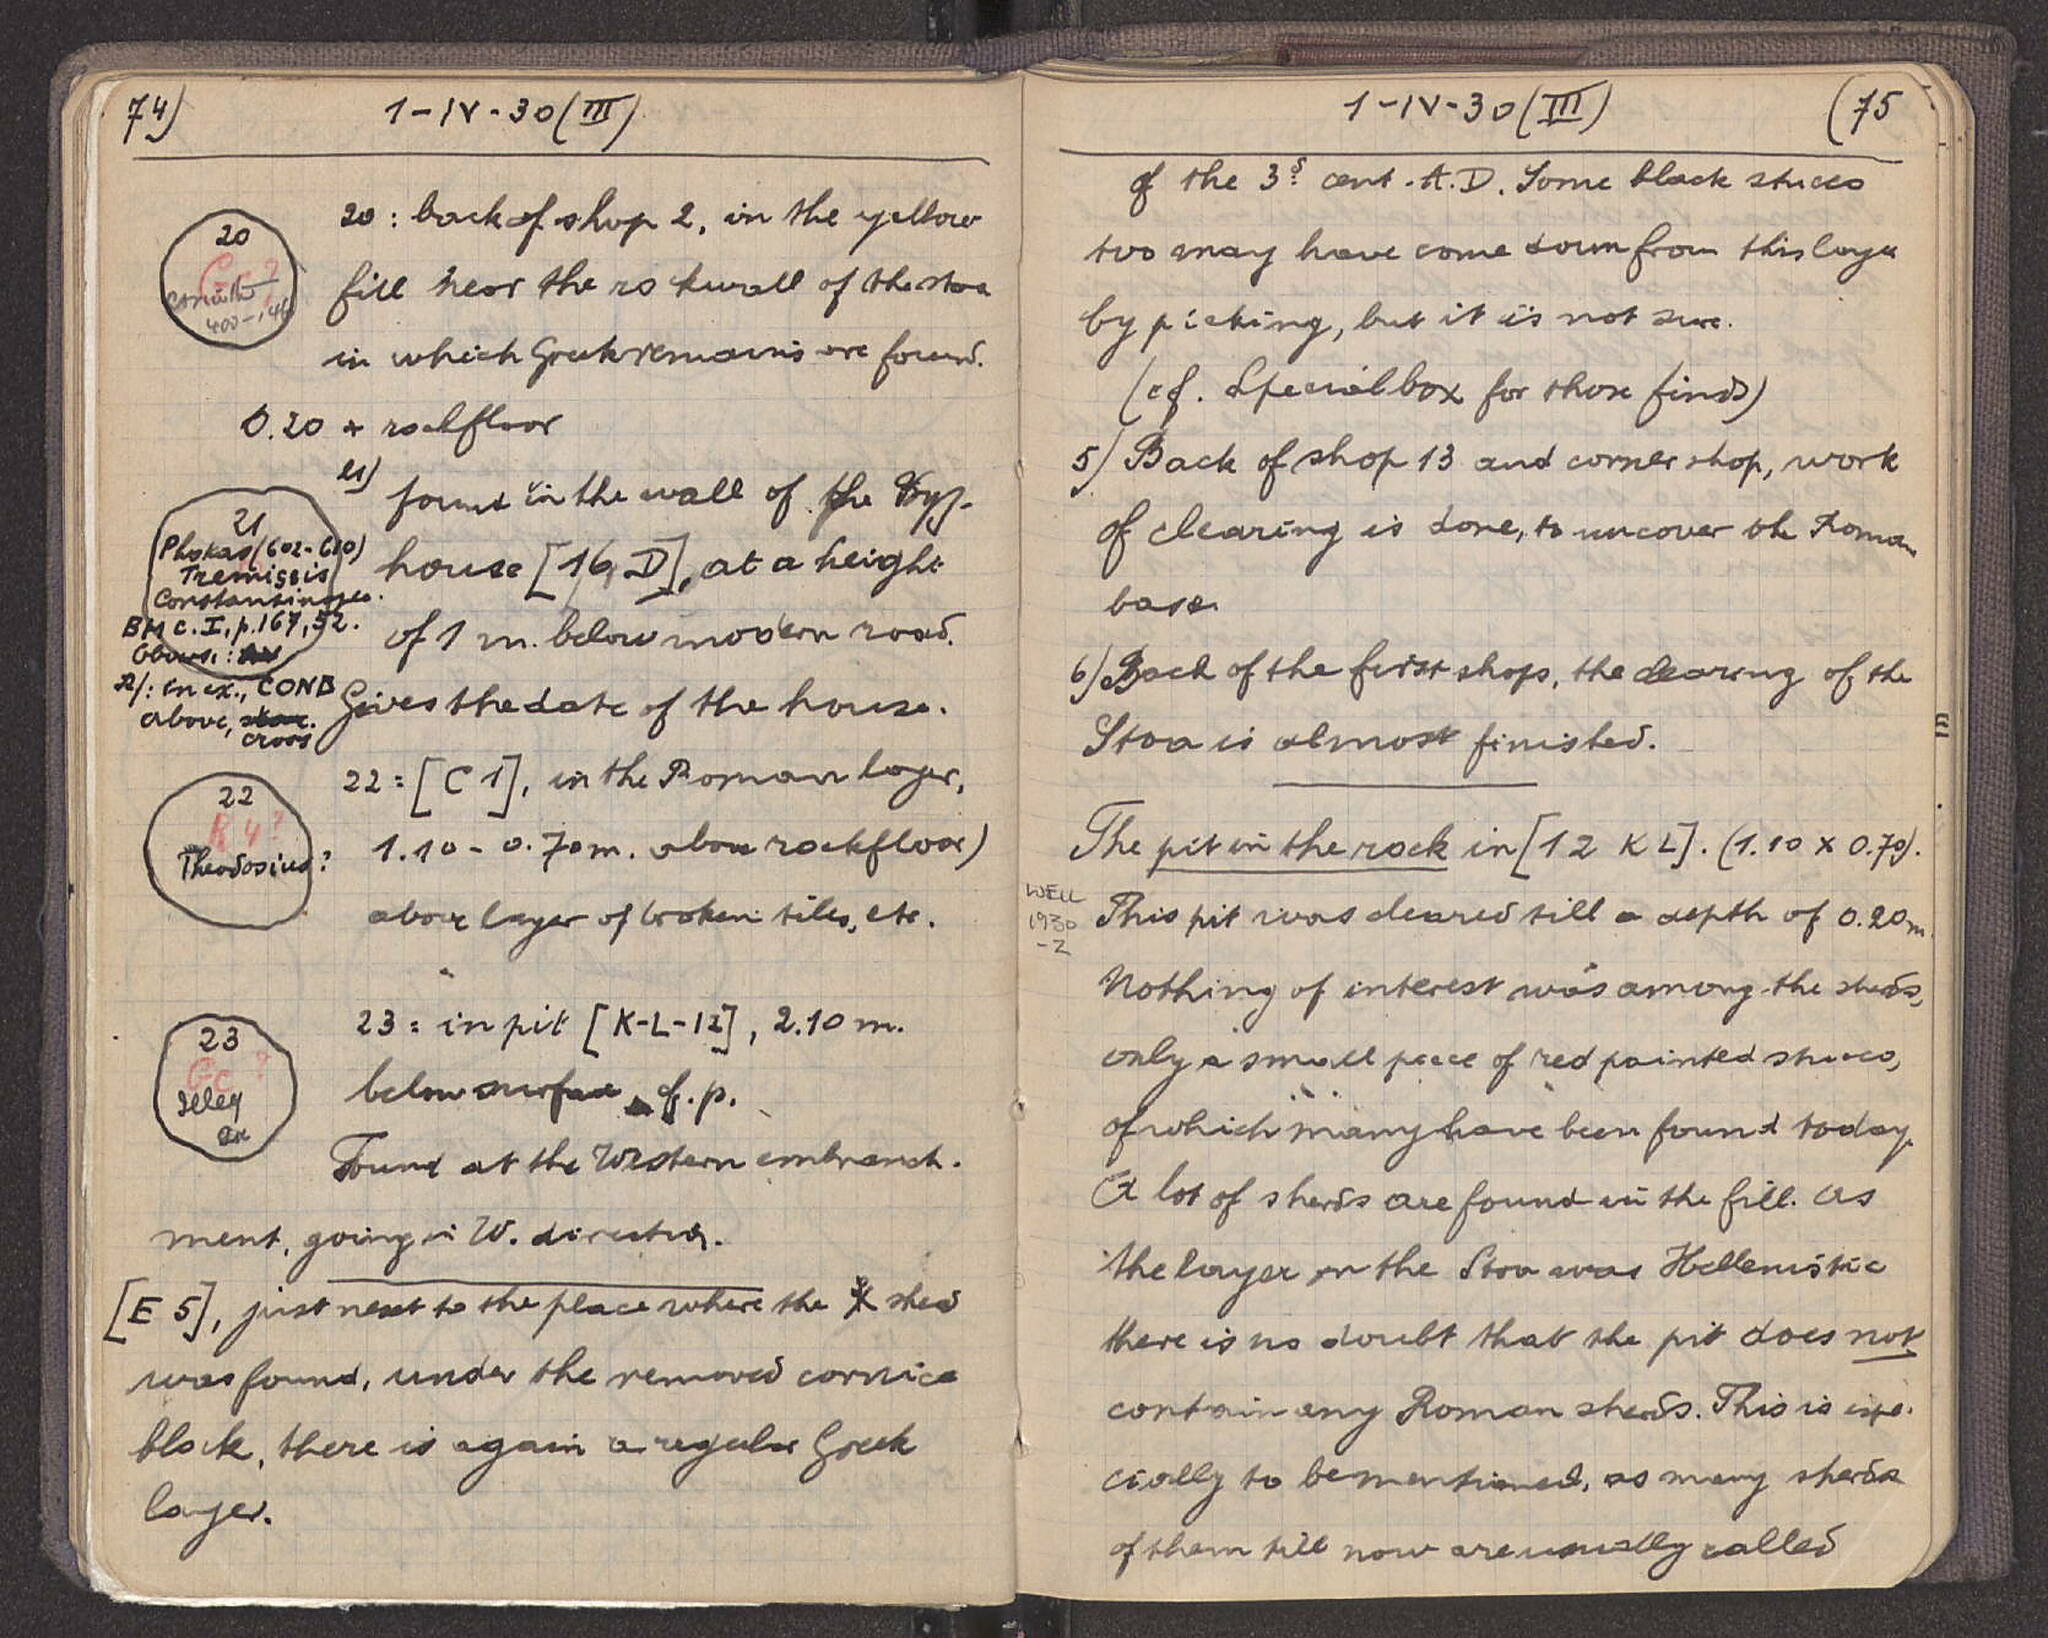 74)
1-IV-30 (III)
20
Corinth
400-146
20: back of shop 2, in the yellow
fill near the rockwall of the stoa
in which Greek remains are found.
0.20 + rockfloor
21)
found in the wall of the Byz.
house [16, D], at a height
of 1 m. below modern road.
Gives the date of the house.
21
Phokas (602-610)
Tremissis
Constantinople.
BM c. I, p. 167, 52.
Obverse:
R/: in ex., CONB
above,
cross
22
R 4?
Theodosius?
22 = [C 1], in the Roman layer,
1.10 - 0.70 m. above rockfloor)
above layer of broken tiles, etc.
23
Gc ?
illeg
23 = in pit [K-L-12], 2.10 m.
below surface f.p.
Found at the Western embranch-
ment, going in W. direction.
[E 5], just next to the place where the sherd
was found, under the removed cornice
block, there is again a regular Greek
layer.
1-IV-30 (III)
(75
of the 3d cent. A.D. Some black stucco
too may have come down from this layer
by picking, but it is not sure.
(cf. Special box for those finds)
5) Back of shop 13 and corner shop, work
of clearing is done, to uncover the Roman
base.
6) Back of the first shops, the clearing of the
Stoa is almost finished.
The pit in the rock in [12 K L]. (1.10 x 0.70).
WELL
1930
-2
This pit was cleared till a depth of 0.20 m.
Nothing of interest was among the sherds,
only a small piece of red painted stucco,
of which many have been found today.
A lot of sherds are found in the fill. As
the layer in the Stoa was Hellenistic
there is no doubt that the pit does not
contain any Roman sherds. This is espe-
cially to be mentioned, as many sherds
of them till now are usually called